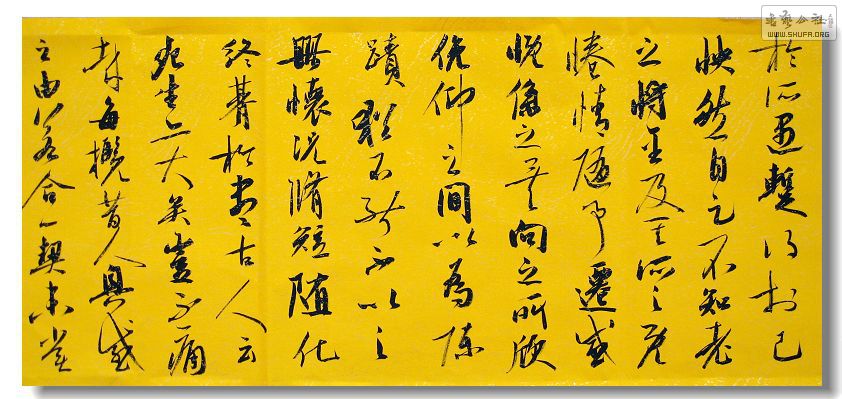 於所遇暫得於己
快然自足不知老
之將至及其所之既
惓情隨事遷感
慨係之矣向之所欣
俛仰之間以為陳
蹟猶不能不以之
興懷況脩短隨化
終期於盡古人云
死生亦大矣豈不痛
哉每攬昔人興感
之由若合一契未嘗
書藝公社
WWW.SHUFA.ORG